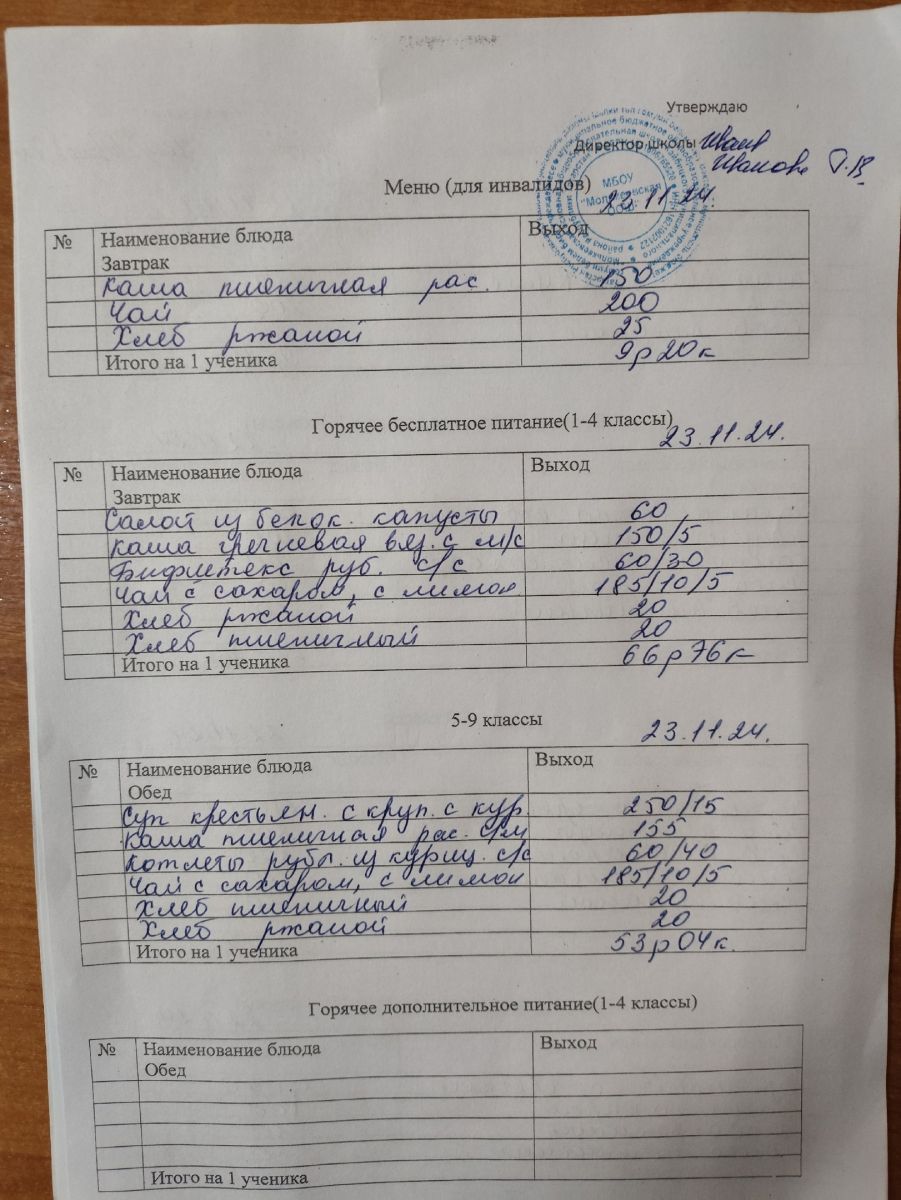 Утверждаю
Директор школы
Иванова Г.В.
МБОУ
Меню (для инвалидов)
23.11.24.
№ Наименование блюда Выход
Завтрак
Каша пшеничная рас. 150
Чай 200
Хлеб ржаной 25
Итого на 1 ученика 9р20к
Горячее бесплатное питание(1-4 классы)
23.11.24.
№ Наименование блюда Выход
Завтрак
Салат из белок. капусты 60
Каша гречневая вяз. с м/с 150/5
Бифштекс руб. с/с 60/30
Чай с сахаром, с лимон 185/10/5
Хлеб ржаной 20
Хлеб пшеничный 20
Итого на 1 ученика 66р76к
5-9 классы
23.11.24.
№ Наименование блюда Выход
Обед
Суп крестьян. с круп. с кур. 250/15
Каша пшеничная рас. с/м 155
Котлеты рубл. из куриц. с/с 60/40
Чай с сахаром, с лимон 185/10/5
Хлеб пшеничный 20
Хлеб ржаной 20
Итого на 1 ученика 53р04к.
Горячее дополнительное питание(1-4 классы)
№ Наименование блюда Выход
Обед
Итого на 1 ученика